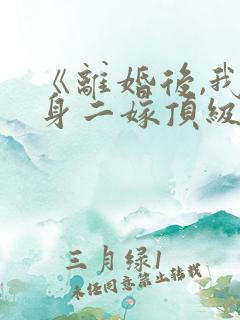 《離婚後,我
身二嫁頂級
三月绿1
未经同意禁止转载